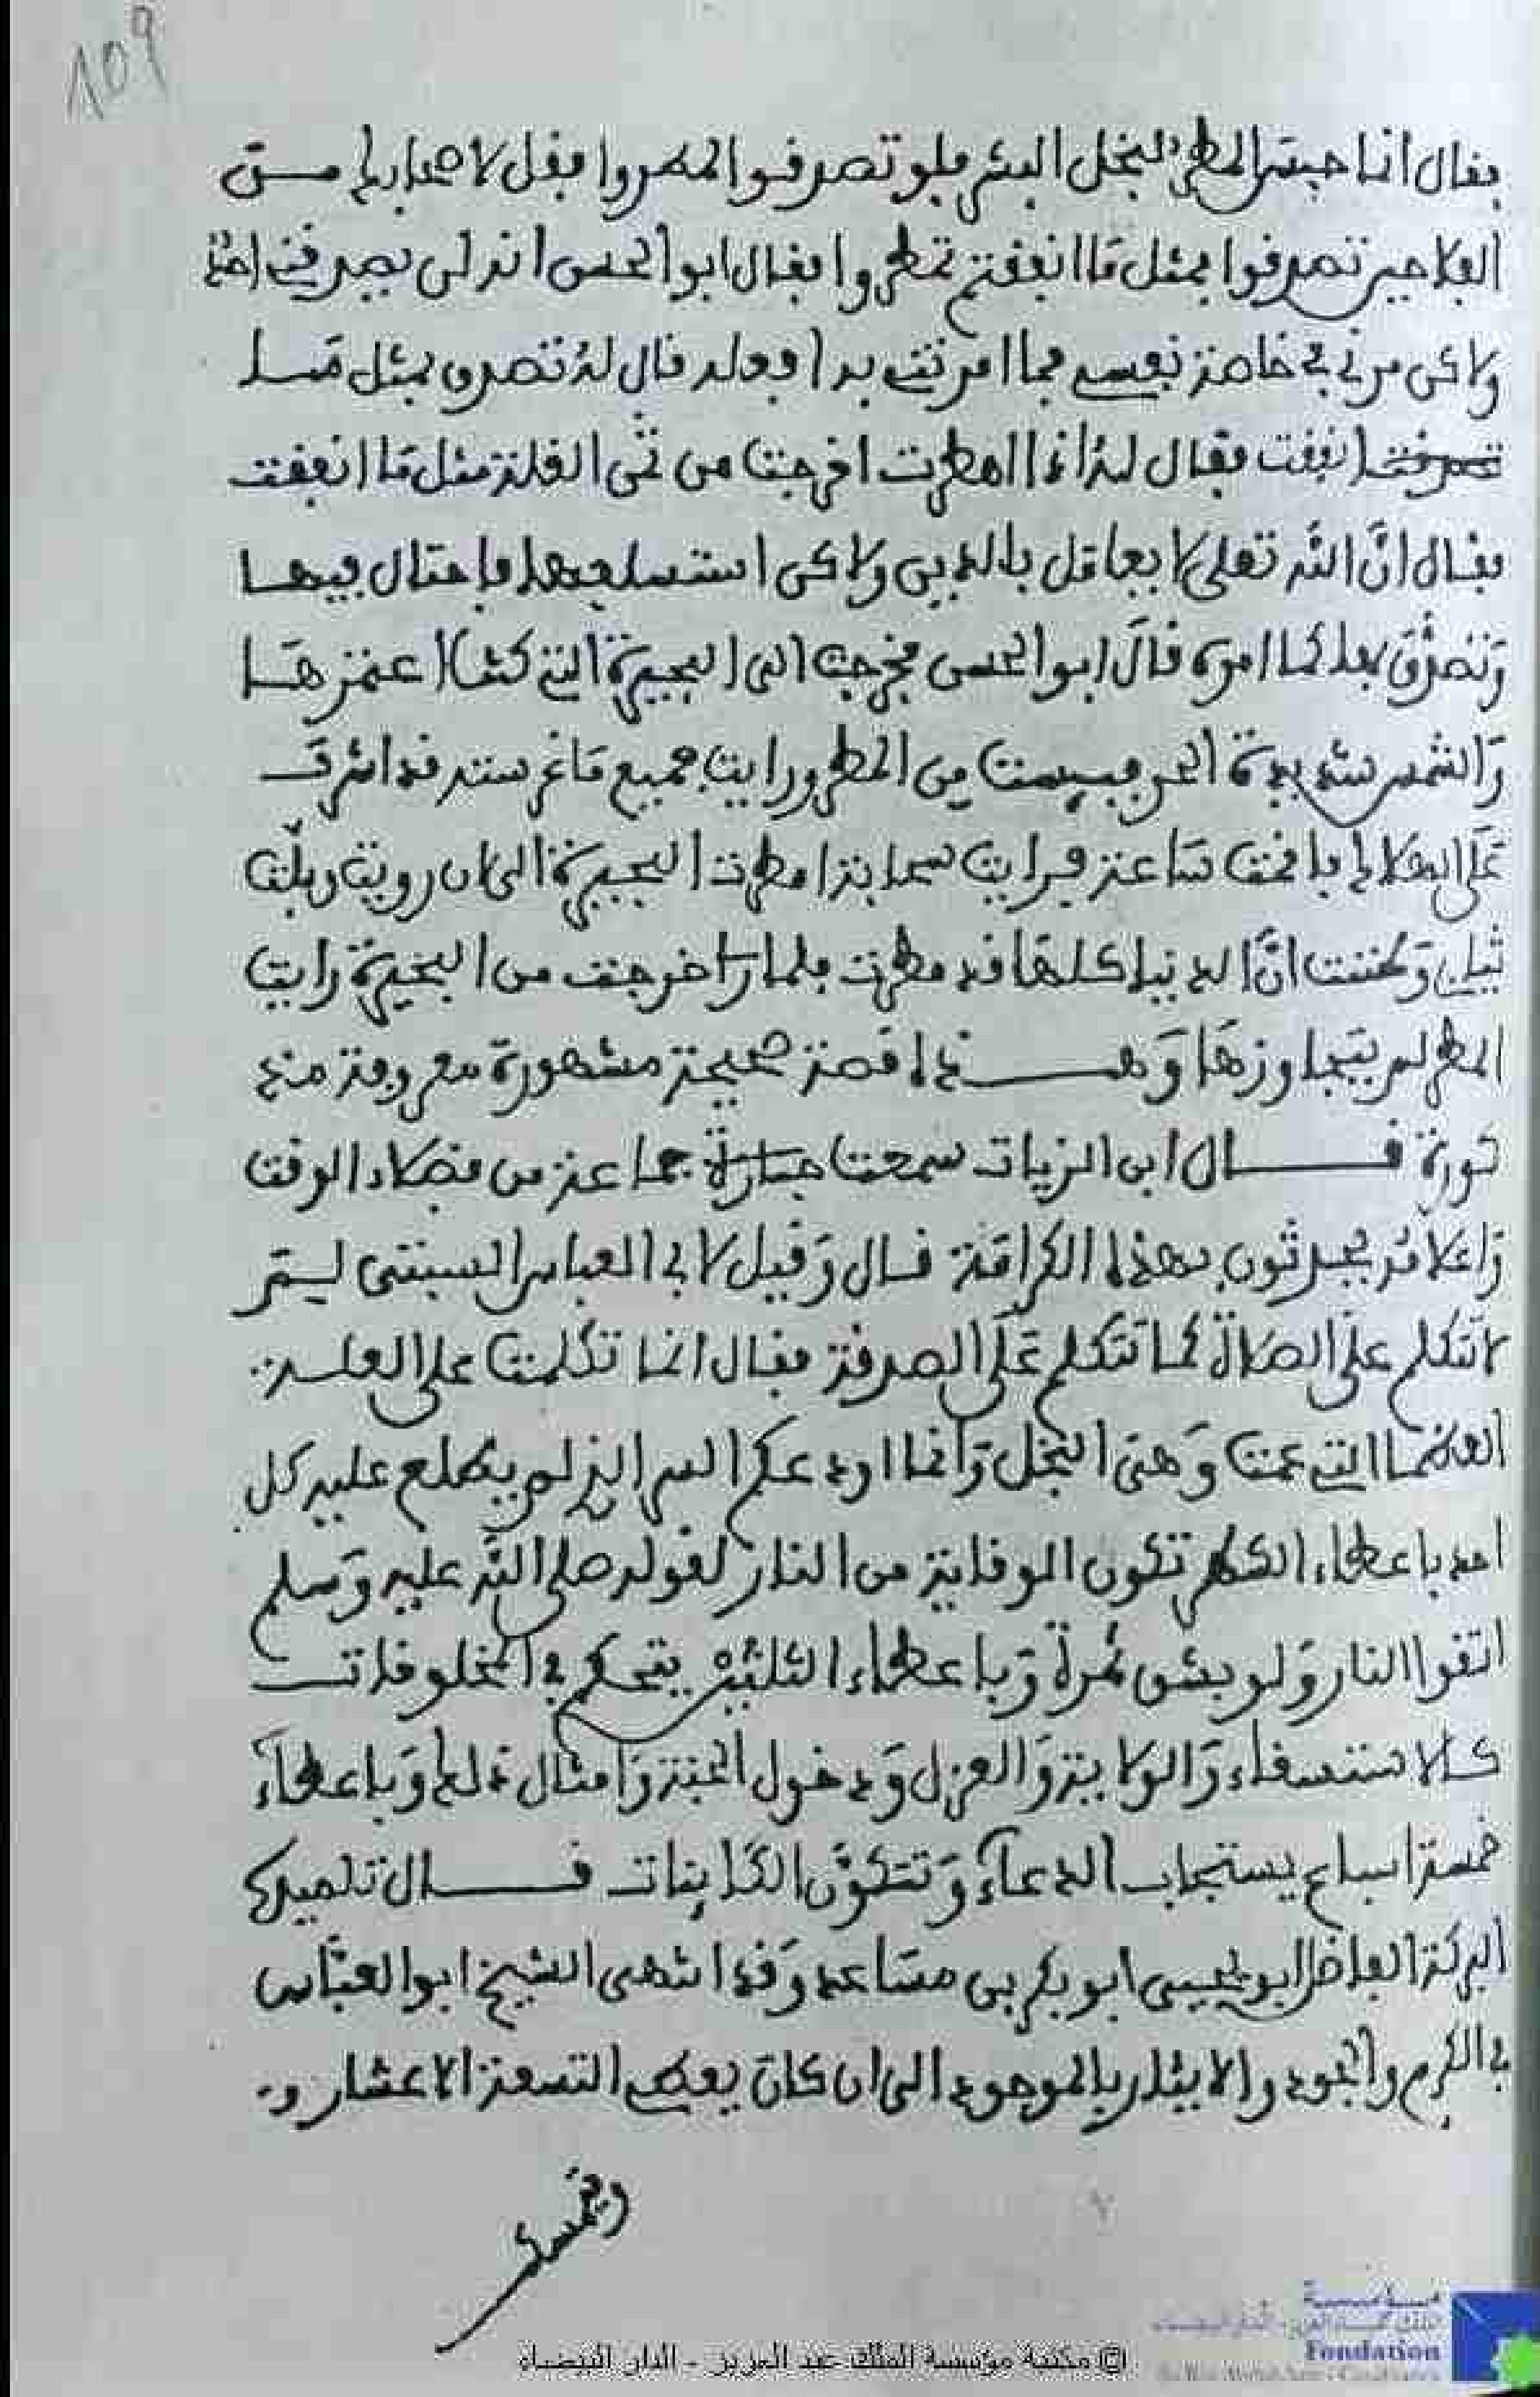 109
فقال انما حبس المطر لبخل البشر فلو تصدقوا لمطروا فقل لاصحابك من
الفلاحين تصدقوا بمثل ما انفقتم تمطروا فقال ابو الحسن انه لن يصدقني احد
ولاكن مرني في خاصة نفسي فما امرتني به افعله قال له تصدق بمثل ما
انفقت فقال له اذا امطرت اخرجت من ثمن الغلة مثل ما انفقت
فقال ان الله تعلى لا يعامل بالدين ولاكن استسلفها فاحتال فيها
وتصدق بها كما امره قال ابو الحسن فخرجت الى البحيرة التي كنت اعمرها
والشمس شديدة الحر فيئست من المطر ورايت جميع ما غرسته قد اشرف
على الهلاك فاقمت ساعة فرايت سحابة امطرت البحيرة الى ان رويت وبلت
ثيابي وظننت ان الدنيا كلها قد مطرت فلما خرجت من البحيرة رايت
المطر لم يتجاوزها وهذا قصة صحيحة مشهورة معروفة منه
قال ابن الزيات سمعت جماعة من فضلاء الوقت
واعلامه يحدثون بهذا الكرامة قال وقيل لابي العباس السبتي لم
لا تتكلم على الصلاة كما تتكلم على الصدقة فقال انما تكلمت على العلة
العظمى التي عمت وهي البخل وانما اودعكم السر الذي لم يطلع عليه كل
احد باعطاء الشطر تكون الوقاية من النار لقوله صلى الله عليه وسلم
اتقوا النار ولو بشق تمرة وباعطاء الثلثين يتحكم في المخلوقات
كالاستسقاء والولاية والعزل ودخول الجنة وامثال ذلك وباعطاء
خمسة اسباع يستجاب الدعاء وتتكون الكاينات قال تلميذه
البركة الفاضل ابو يحيى ابو بكر بن مساعد وقد انتهى الشيخ ابو العباس
في الكرم والجود والايثار بالموجود الى ان كان يعطي التسعة الاعشار و
© مكتبة مؤسسة الملك عبد العزيز - الدار البيضاء
Fondation